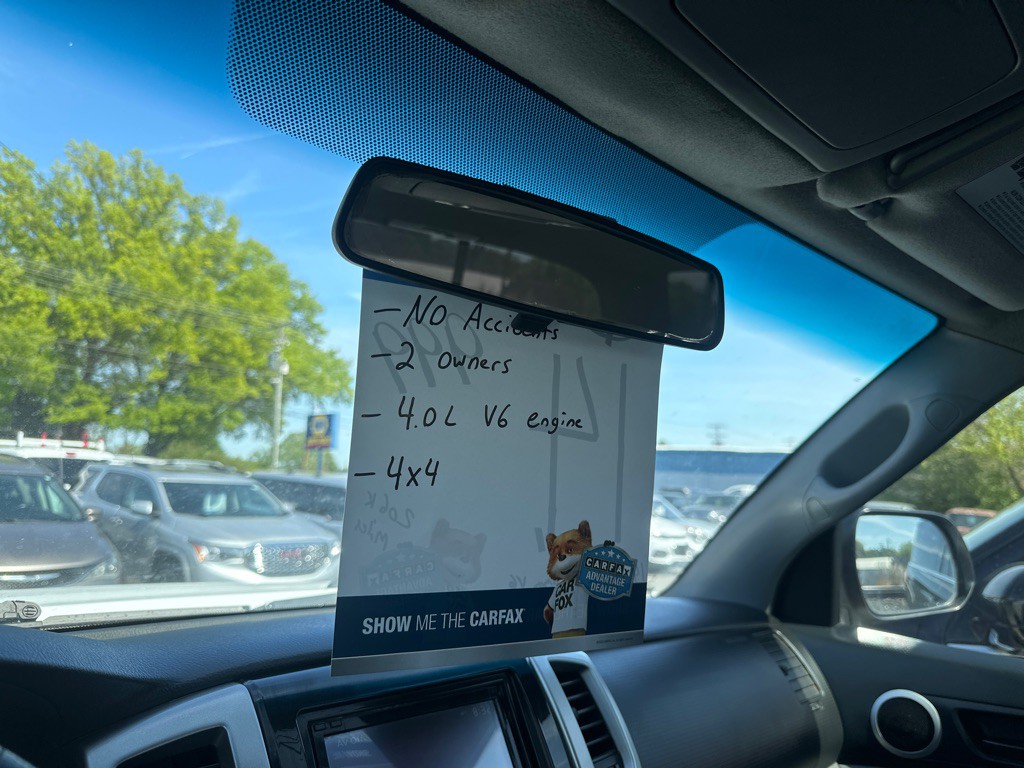 - No Accidents
- 2 owners
- 4.0L V6 engine
- 4x4
206K
miles
V6
CAR
FOX
CARFAX
ADVANTAGE
DEALER
SHOW ME THE CARFAX